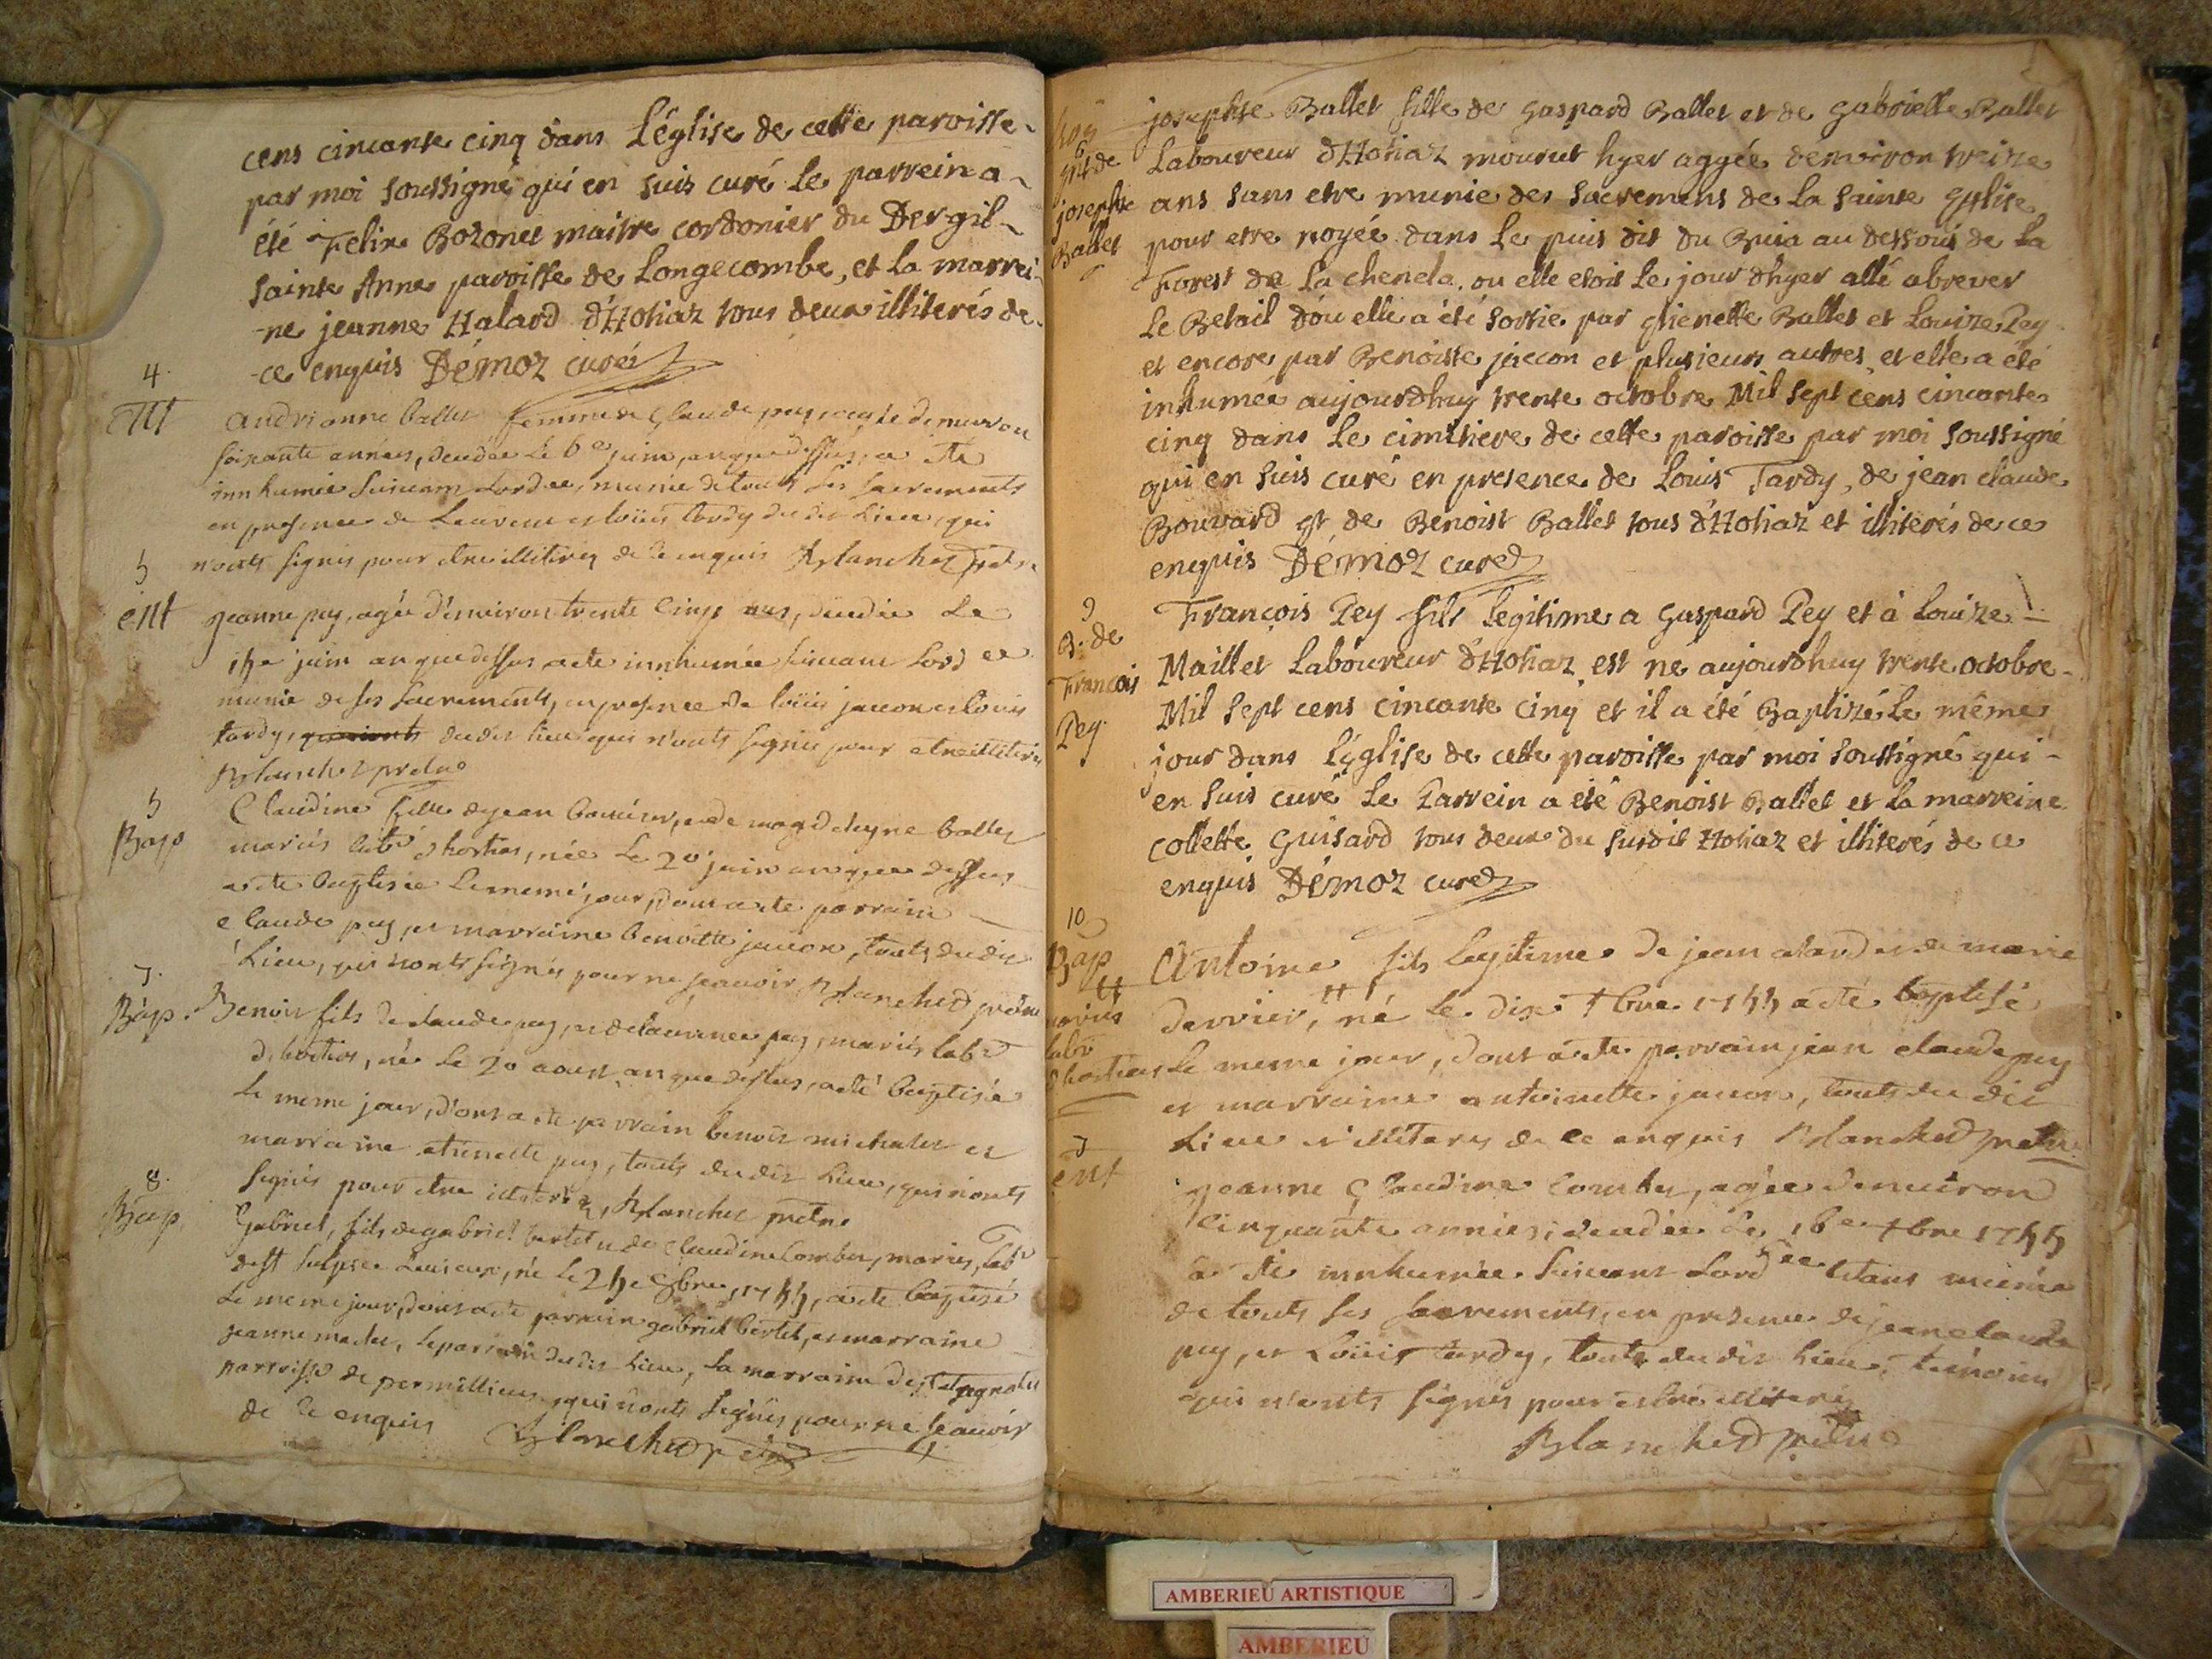 cens cincante cinq dans L'église de cette paroisse
par moi soussigné qui en suis curé Le parrein a
été Felix Bozonet maitre cordonier du Dergil
sainte Anne paroisse de Longecombe, et la marrei
-ne jeanne Halard d'Hotiaz tous deux illiterés de
-ce enquis Démoz curé
4.
ent
andrianne ballet femme de Claude pey, agée denviron
soixante années, decedée le 6e juin, an que dessus, a eté
innhumée suivant Lordre, munie de touts ses sacrements
en presence de Laurent et loüis tardy du dit Lieu, qui
n'onts signés pour etre illiterez de ce enquis Blanchet pretre
5
ent
jeanne pey, agée d'environ trente cinq ans, decedée Le
juin an que dessus a eté innhumée suivant Lordre
munie de ses sacrements, en presence de loüis jaccon et loüis
tardy, du dit lieu qui n'onts signés pour etre illiterés
Blanchet pretre
5
Bap
Claudine fille de jean et de magdeleyne ballet
mariés labr d'hortias, née Le 20 juin an que dessus
a eté baptisée Le meme jour, dont a eté parrain
Claude pey, et marraine benoitte jaccon, touts du dit
Lieu, qui n'onts signés pour ne sçauoir Blanchet pretre
7.
Bap.
Benoit fils de claude pey, et de laurence pey, mariés labr
d'hortias, né Le 20 aoust an que dessus, a eté baptisé
Le meme jour, d'ont a eté parrain benoit michalet et
marraine etienette pey, touts du dit Lieu, qui n'onts
signés pour etre illiterés, Blanchet pretre
8.
Bap
Gabriel, fils de gabriel bertet et de Claudine Combet, mariés, labr
de st sulpice né le 25e 8bre, 1755, a eté baptisé
Le meme jour, dont a eté parrain gabriel bertet, et marraine
jeanne le parrain du dit Lieu, la marraine de
parroisse de qui n'onts signés pour ne sçauoir
de ce enquis Blanchet pretre
josephte
Ballet
josephte Ballet fille de Gaspard Ballet et de Gabrielle Ballet
Laboureur d'Hotiaz mourut hyer aggée denviron treize
ans sans etre munie des sacremens de La sainte Eglise
pour etre noyée dans Le puis dit du Buia au dessous de La
Forest de La chenela, ou elle etoit Le jour d'hyer allé abrever
Le Betail d'où elle a été sortie par Ballet et Louize Pey
et encore par Benoiste jaccon et plusieurs autres, et elle a été
inhumée aujourdhuy trente octobre Mil sept cens cincante
cinq dans Le cimitiere de cette paroisse par moi soussigné
qui en suis curé en presence de Louis Tardy, de jean claude
Bouvard et de Benoist Ballet tous d'Hotiaz et illiterés de ce
enquis Démoz curé
9
B. de
François
Pey
François Pey fils legitime a Gaspard Pey et à Louize
Maillet Laboureur d'Hotiaz est né aujourdhuy trente octobre
Mil sept cens cincante cinq et il a été Baptizé Le même
jour dans L'église de cette paroisse par moi soussigné qui
en suis curé Le Parrein a été Benoist Ballet et La marreine
collette Guisard tous deux du susdit Hotiaz et illiterés de ce
enquis Démoz curé
10
Bap
mariés
labr
d'hortias
Antoine fils legitime de jean alard et de marie
derrier, né le dix bre 1755 a eté baptisé
Le meme jour, dont a eté parrain jean claude pey
et marraine antoinette jaccon, touts du dit
Lieu et illiterez de ce enquis Blanchet pretre
7
ent
jeanne Claudine Combet, agée denuiron
cinquante années, decedée Le 16e bre 1755
a eté innhumée suivant Lordre etant munie
de touts ses sacrements, en presence de jean claude
pey, et Loüis tardy, touts du dit Lieu, temoins
qui n'onts signés pour estre illiterés
Blanchet pretre
AMBERIEU ARTISTIQUE
AMBERIEU